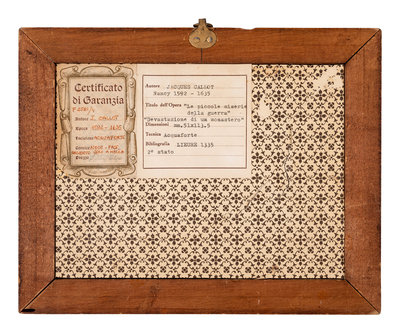 Certificato
di Garanzia
Autore J. CALLOT
Epoca 1592 - 1635
Tecnica ACQUAFORTE
Autore JACQUES CALLOT
Nancy 1592 - 1635
Titolo dell'Opera "Le piccole miserie
della guerra"
"Devastazione di un monastero"
Dimensioni mm.51x113.5
Tecnica Acquaforte
Bibliografia LIEURE 1335
2° stato